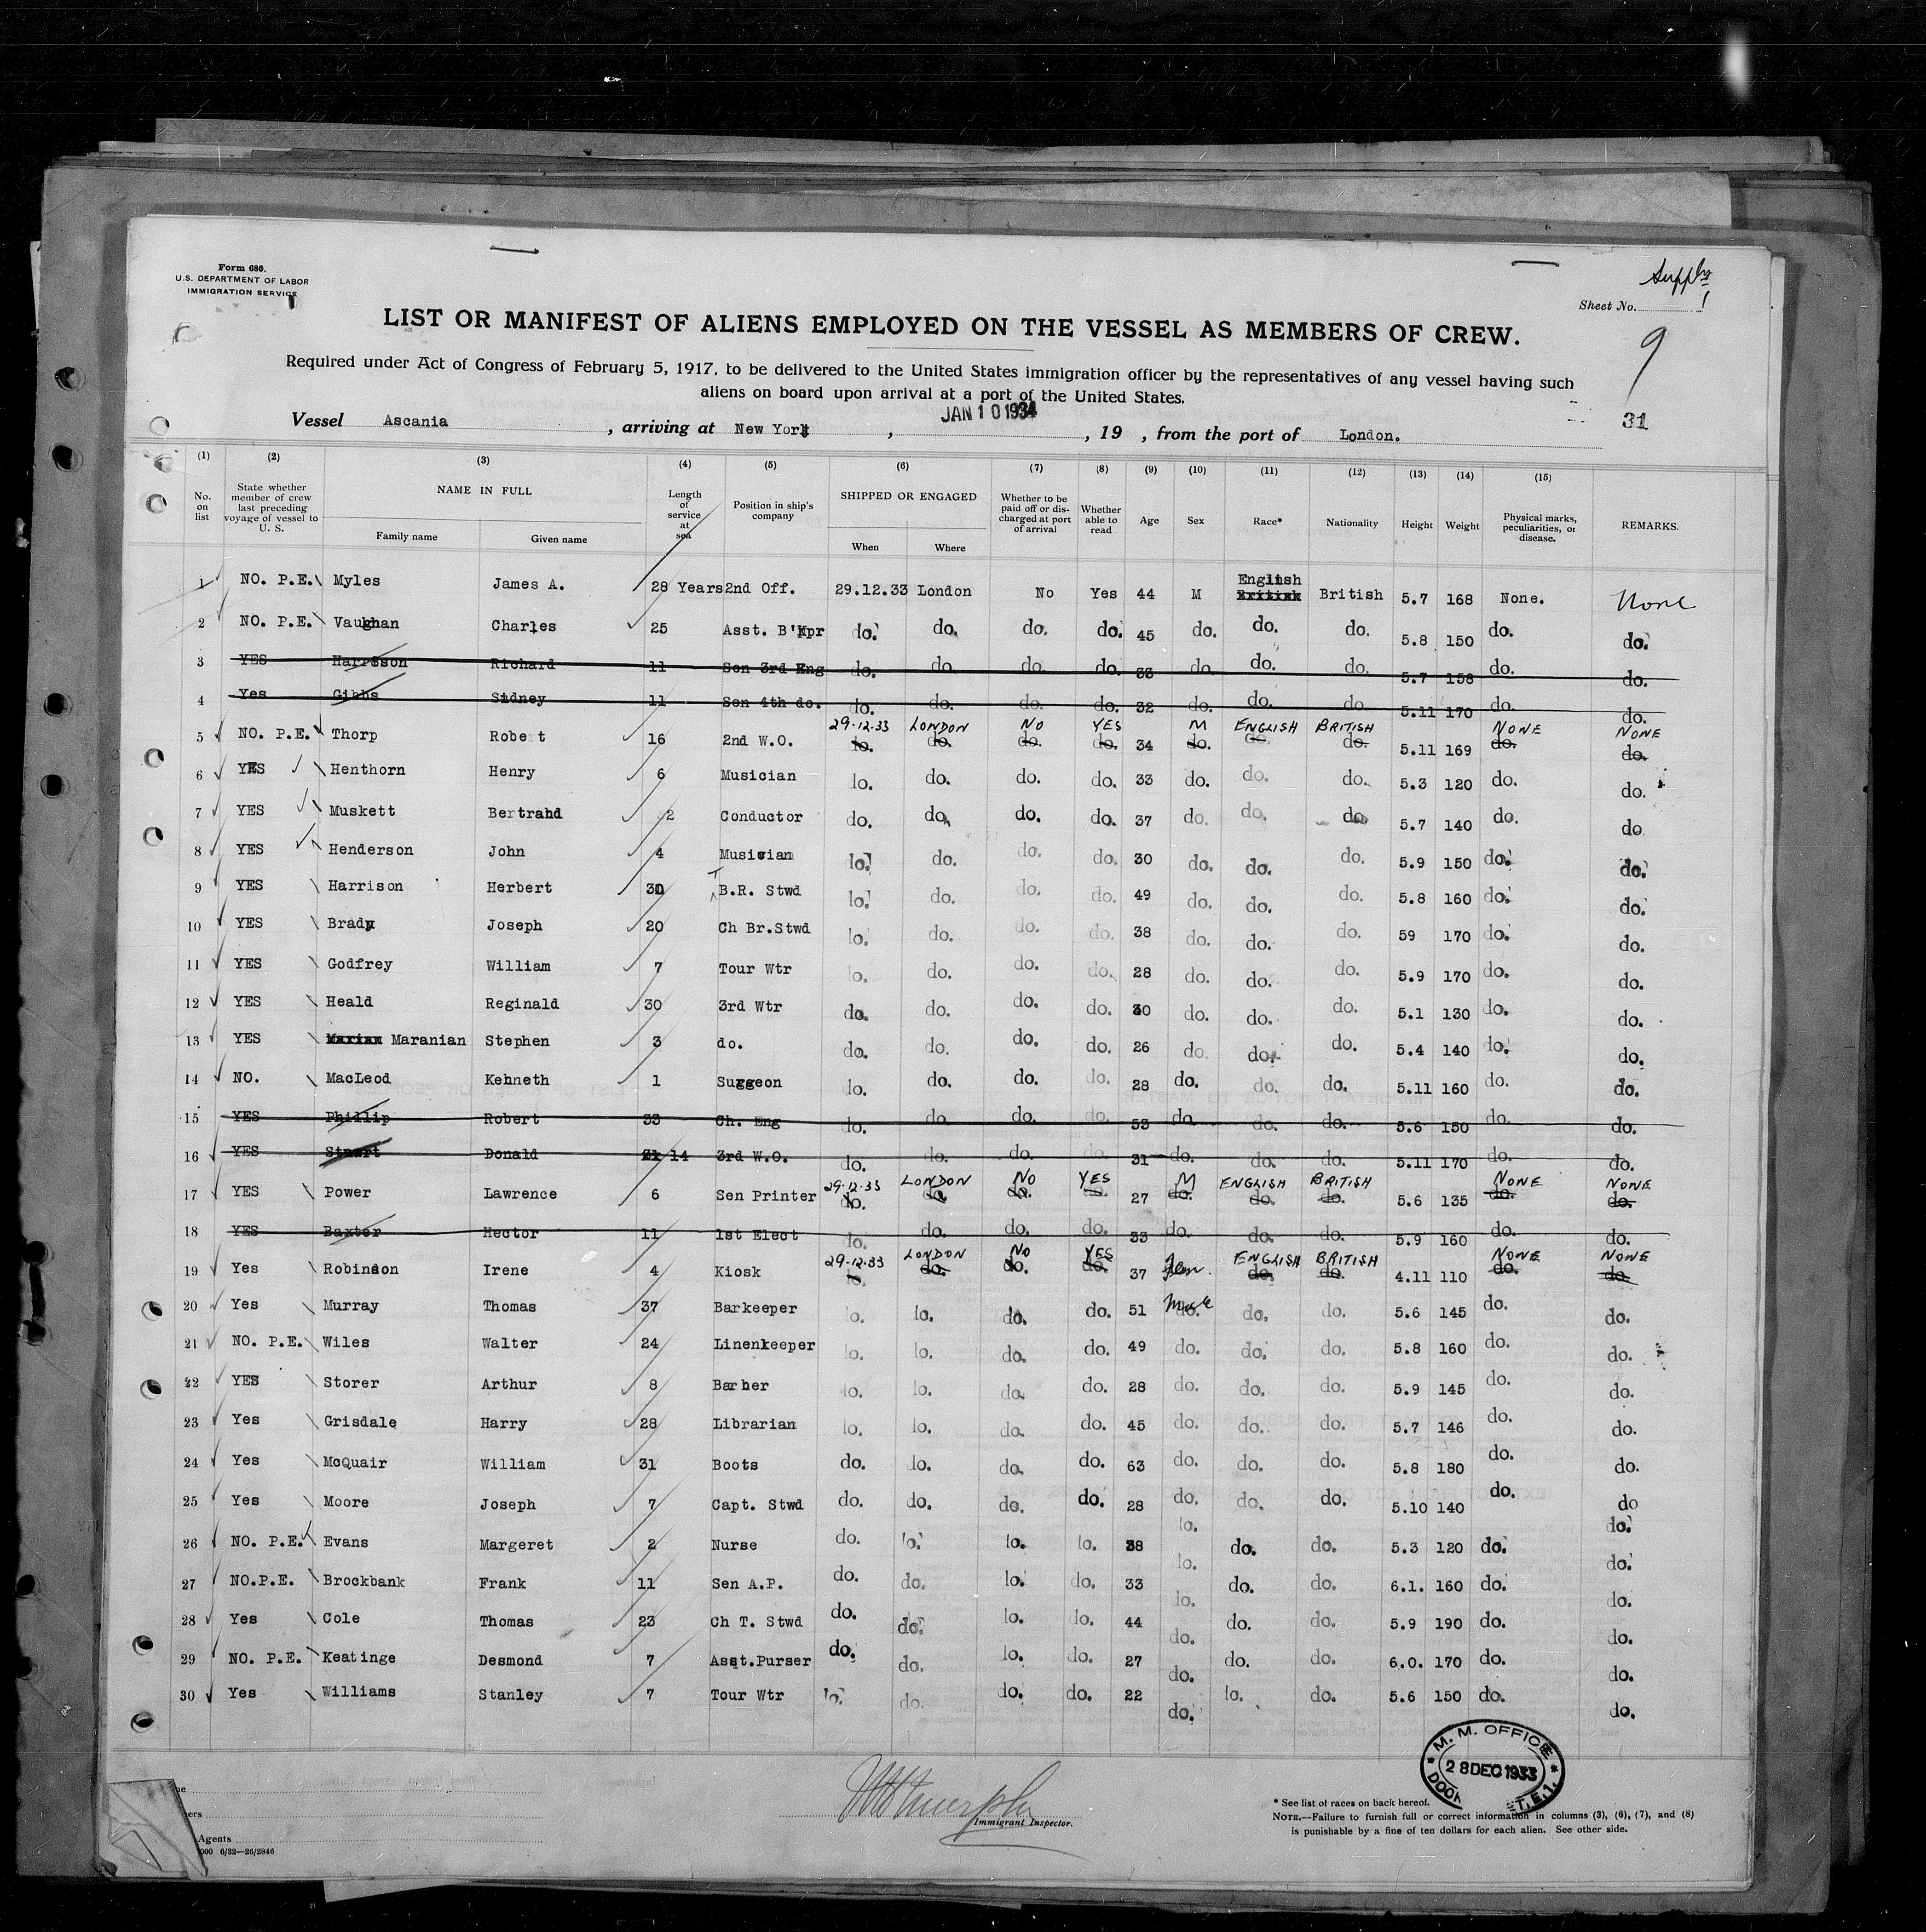 Form 680.
U.S. DEPARTMENT OF LABOR
IMMIGRATION SERVICE
Suppl
Sheet No. 1
LIST OR MANIFEST OF ALIENS EMPLOYED ON THE VESSEL AS MEMBERS OF CREW.
9
Required under Act of Congress of February 5, 1917, to be delivered to the United States immigration officer by the representatives of any vessel having such
aliens on board upon arrival at a port of the United States.
JAN 10 1934
31
Vessel Ascania, arriving at New York, , 19 , from the port of London.
(1) (2) (3) (4) (5) (6) (7) (8) (9) (10) (11) (12) (13) (14) (15)
No. on list State whether member of crew last preceding voyage of vessel to U. S. NAME IN FULL Family name Given name Length of service at sea Position in ship's company SHIPPED OR ENGAGED When Where Whether to be paid off or discharged at port of arrival Whether able to read Age Sex Race* Nationality Height Weight Physical marks, peculiarities, or disease. REMARKS.
1 NO. P.E. Myles James A. 28 Years 2nd Off. 29.12.33 London No Yes 44 M English British British 5.7 168 None. None
2 NO. P.E. Vaughan Charles 25 Asst. B'Kpr do. do. do. do. 45 do. do. do. 5.8 150 do. do.
3 YES Harrison Richard 11 Sen 3rd Eng do. do. do. do. 33 do. do. do. 5.7 158 do. do.
4 Yes Gibbs Sidney 11 Sen 4th do. do. do. do. do. 32 do. do. do. 5.11 170 do. do.
29-12-33 LONDON NO YES M ENGLISH BRITISH NONE NONE
5 NO. P.E. Thorp Robe t 16 2nd W.O. do. do. do. do. 34 do. do. do. 5.11 169 do. do.
6 YES Henthorn Henry 6 Musician do. do. do. do. 33 do. do. do. 5.3 120 do. do.
7 YES Muskett Bertrand 2 Conductor do. do. do. do. 37 do. do. do. 5.7 140 do. do
8 YES Henderson John 4 Musician do. do. do. do. 30 do. do. do. 5.9 150 do. do.
9 YES Harrison Herbert 30 B.R. Stwd do. do. do. do. 49 do. do. do. 5.8 160 do. do.
10 YES Brady Joseph 20 Ch Br.Stwd do. do. do. do. 38 do. do. do. 59 170 do. do.
11 YES Godfrey William 7 Tour Wtr do. do. do. do. 28 do. do. do. 5.9 170 do. do.
12 YES Heald Reginald 30 3rd Wtr do. do. do. do. 30 do. do. do. 5.1 130 do. do.
13 YES Marian Maranian Stephen 3 do. do. do. do. do. 26 do. do. do. 5.4 140 do. do.
14 NO. MacLeod Kenneth 1 Surgeon do. do. do. do. 28 do. do. do. 5.11 160 do. do.
15 YES Phillip Robert 33 Ch. Eng do. do. do. do. 53 do. do. do. 5.6 150 do. do.
16 YES Stuart Donald 14 3rd W.O. do. do. do. do. 31 do. do. do. 5.11 170 do. do.
29-12-33 LONDON NO YES M ENGLISH BRITISH NONE NONE
17 YES Power Lawrence 6 Sen Printer do. do. do. do. 27 do. do. do. 5.6 135 do. do.
18 YES Baxter Hector 11 1st Elect do. do. do. do. 33 do. do. do. 5.9 160 do. do.
29-12-33 LONDON NO YES ENGLISH BRITISH NONE NONE
19 Yes Robinson Irene 4 Kiosk do. do. do. do. 37 Fem. do. do. 4.11 110 do. do.
20 Yes Murray Thomas 37 Barkeeper do. do. do. do. 51 Male do. do. do. 5.6 145 do. do.
21 NO. P.E. Wiles Walter 24 Linenkeeper do. do. do. do. 49 do. do. do. 5.8 160 do. do.
22 YES Storer Arthur 8 Barber do. do. do. do. 28 do. do. do. 5.9 145 do. do.
23 Yes Grisdale Harry 28 Librarian do. do. do. do. 45 do. do. do. 5.7 146 do. do.
24 Yes McQuair William 31 Boots do. do. do. do. 63 do. do. do. 5.8 180 do. do.
25 Yes Moore Joseph 7 Capt. Stwd do. do. do. do. 28 do. do. do. 5.10 140 do. do
26 NO. P.E. Evans Margeret 2 Nurse do. do. do. do. 38 do. do. do. 5.3 120 do. do.
27 NO.P.E. Brockbank Frank 11 Sen A.P. do. do. do. do. 33 do. do. do. 6.1. 160 do. do.
28 Yes Cole Thomas 23 Ch T. Stwd do. do. do. do. 44 do. do. do. 5.9 190 do. do.
29 NO. P.E. Keatinge Desmond 7 Asst.Purser do. do. do. do. 27 do. do. do. 6.0. 170 do. do.
30 Yes Williams Stanley 7 Tour Wtr do. do. do. do. 22 do. do. do. 5.6 150 do. do.
do.
M. M. OFFICE
28 DEC 1933
Immigrant Inspector.
* See list of races on back hereof.
NOTE.—Failure to furnish full or correct information in columns (3), (6), (7), and (8)
is punishable by a fine of ten dollars for each alien. See other side.
Agents
000 6/32—26/2846